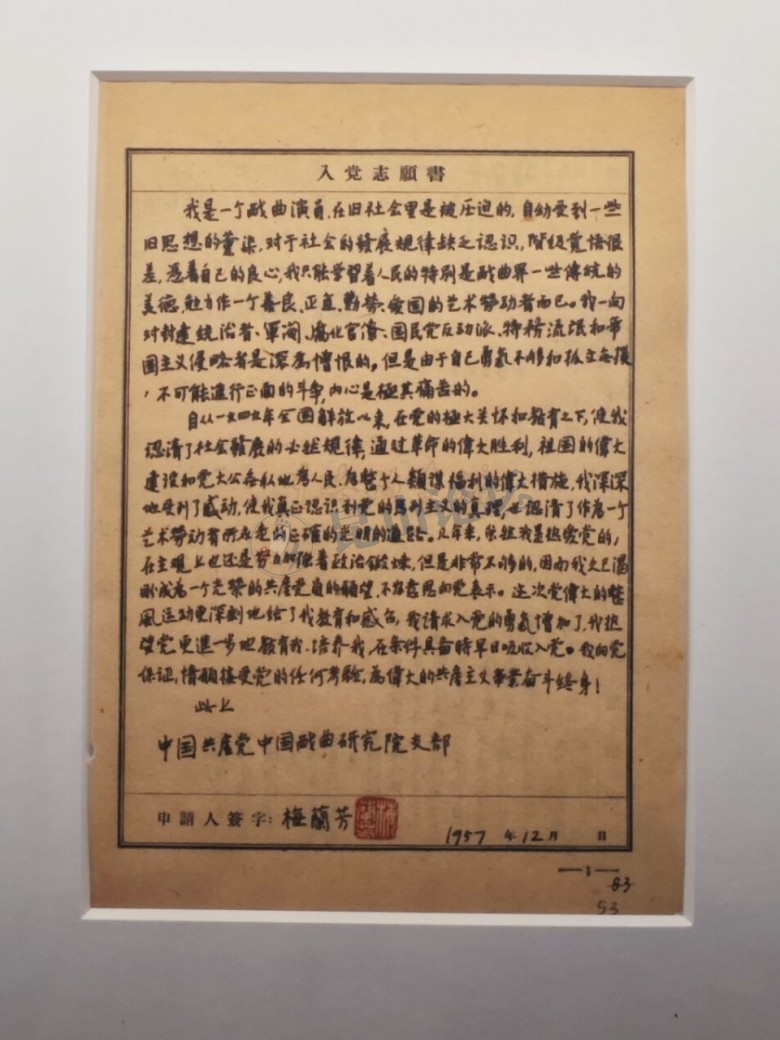 入党志願書
我是一个戏曲演員，在旧社会里是被压迫的，自幼受到一些
旧思想的薰染，对于社会的發展规律缺乏認识，階级覚悟很
差，凭着自己的良心，我只能学習着人民的特别是戏曲界一些傳統的
美德，勉力作一个善良、正直、勤劳、爱国的艺术劳动者而已。我一向
对封建统治者、軍阀、腐化官僚、国民党反动派、特務流氓和帝
国主义侵略者是深為憎恨的，但是由于自己勇氣不够和孤立無援
，不可能進行正面的斗争，内心是極其痛苦的。
自从一九四九年全国解放以来，在党的極大关怀和教育之下，使我
認清了社会發展的必然規律，通过革命的偉大胜利，祖国的偉大
建设和党大公無私地為人民、為整个人類謀福利的偉大措施，我深深
地受到了感动，使我真正認识到党的馬列主义的真理，也認清了作為一个
艺术劳动者所应走的正確的光明的道路。几年来，虽然我是热爱党的，
在主观上也还是努力加强着政治鍛煉，但是非常不够的，因而我久已渴
盼成為一个光荣的共產党員的願望，不好意思向党表示。这次党偉大的整
風运动更深刻地给了我教育和感召，我請求入党的勇氣增加了，我热
望党更進一步地教育我、培养我，在条件具备時早日吸收入党。我向党
保証，情願接受党的任何考驗，為偉大的共產主义事業奋斗终身！
此上
中国共產党中国戏曲研究院支部
申請人簽字：梅蘭芳
1957年12月 日
1
83
53